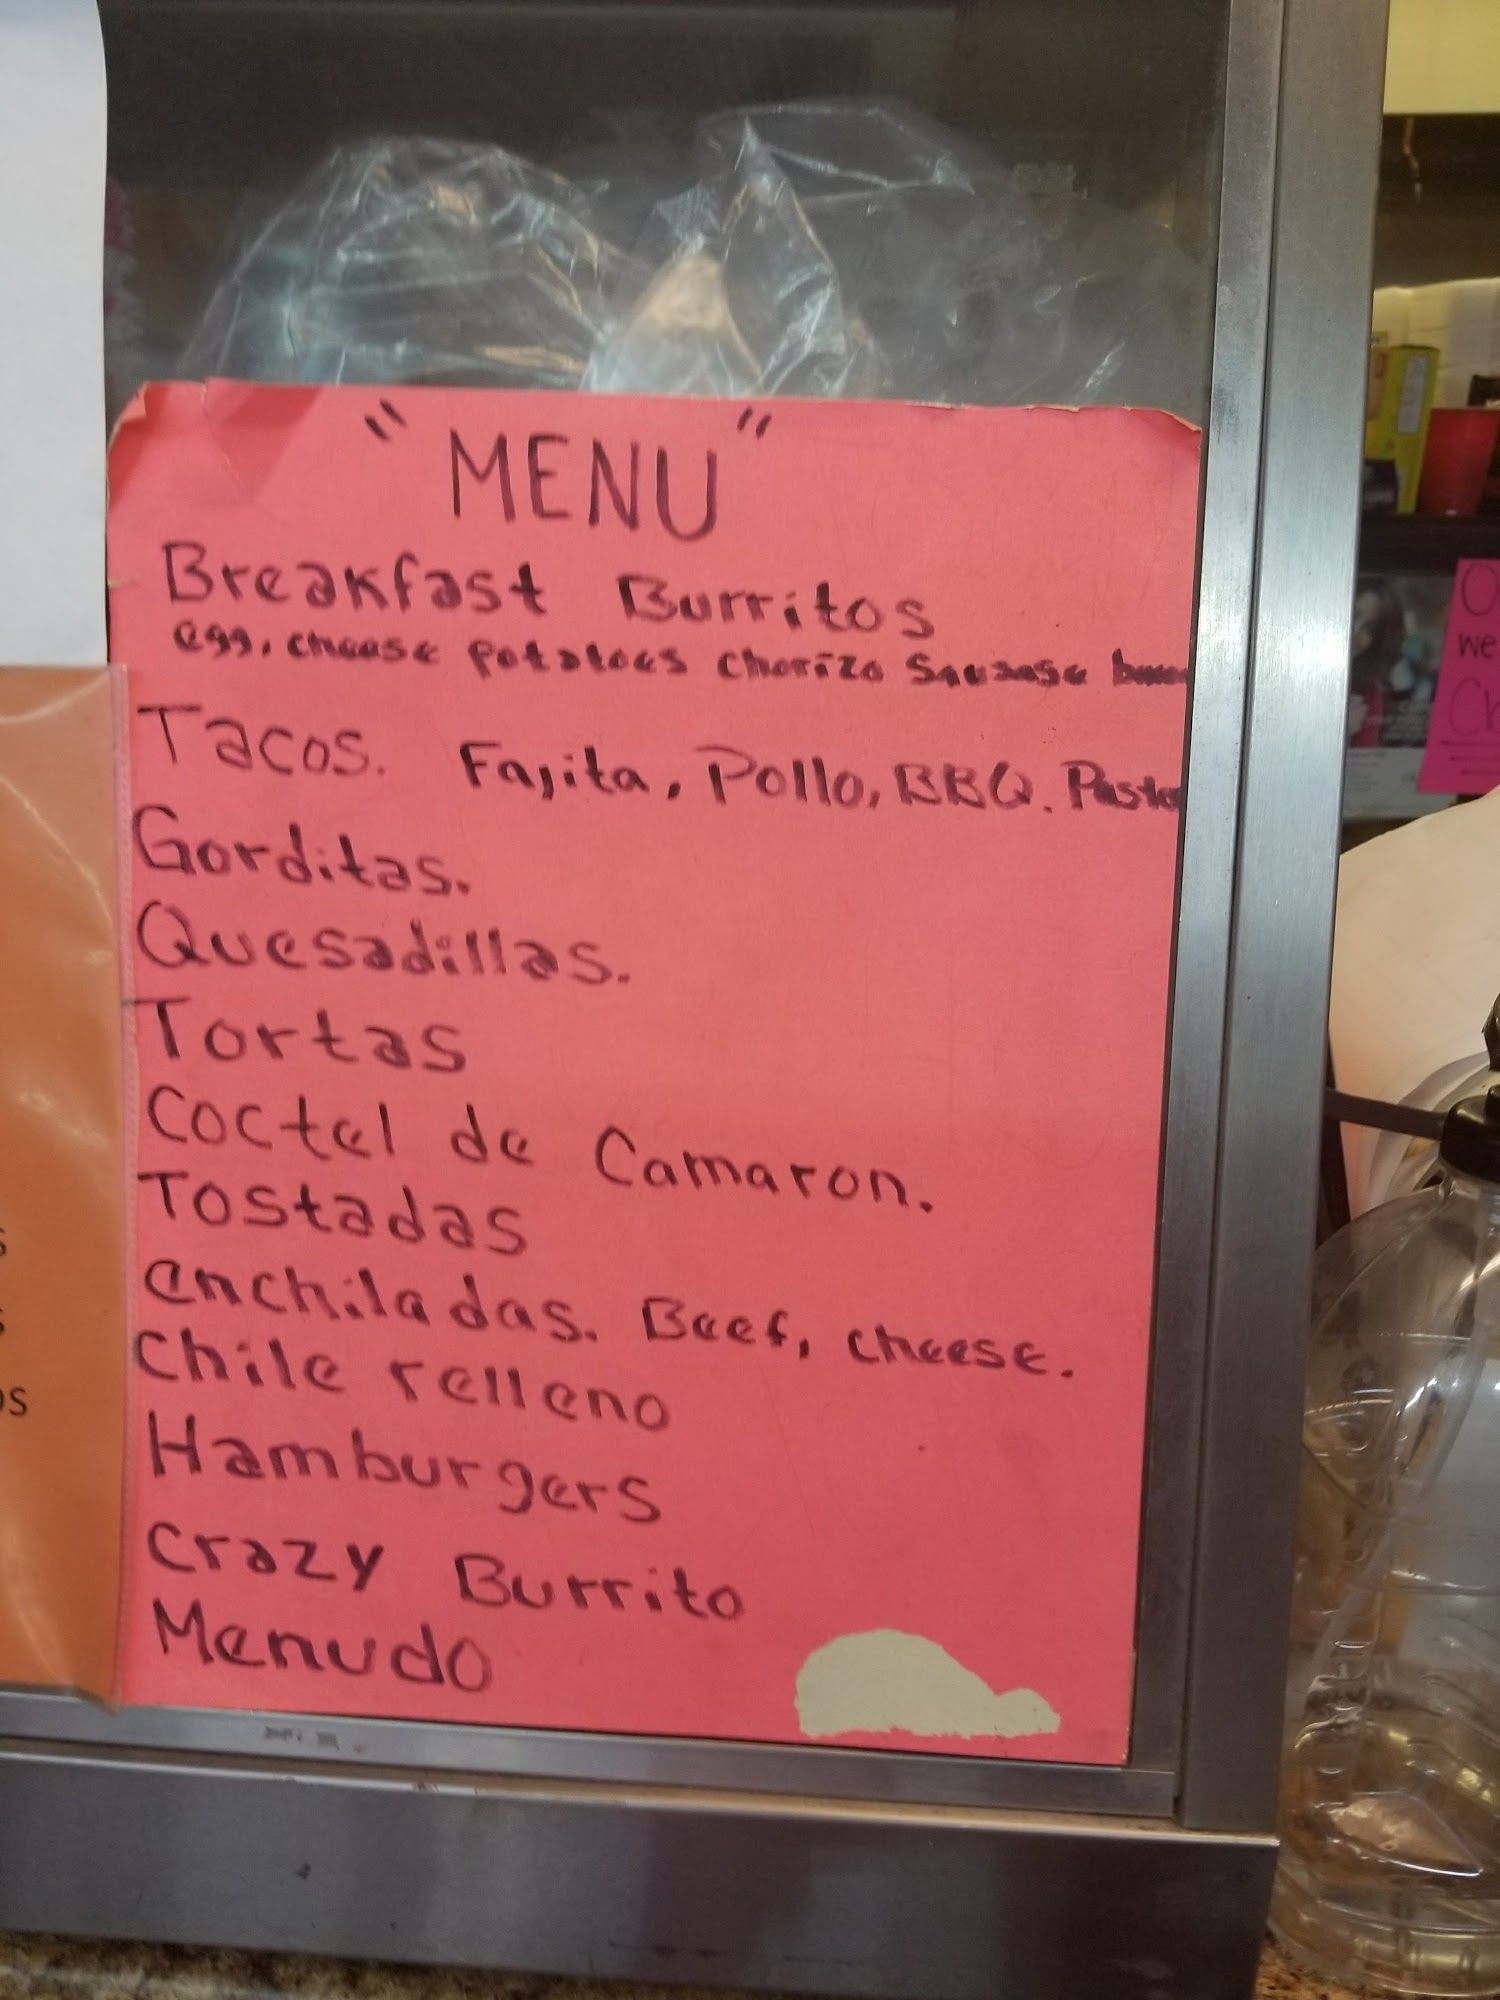 " MENU "
Breakfast Burritos
egg, cheese potatoes chorizo Sausage
Tacos. Fajita, Pollo, BBQ. Pastor
Gorditas.
Quesadillas.
Tortas
Coctel de Camaron.
Tostadas
enchiladas. Beef, cheese.
Chile relleno
Hamburgers
Crazy Burrito
Menudo
we